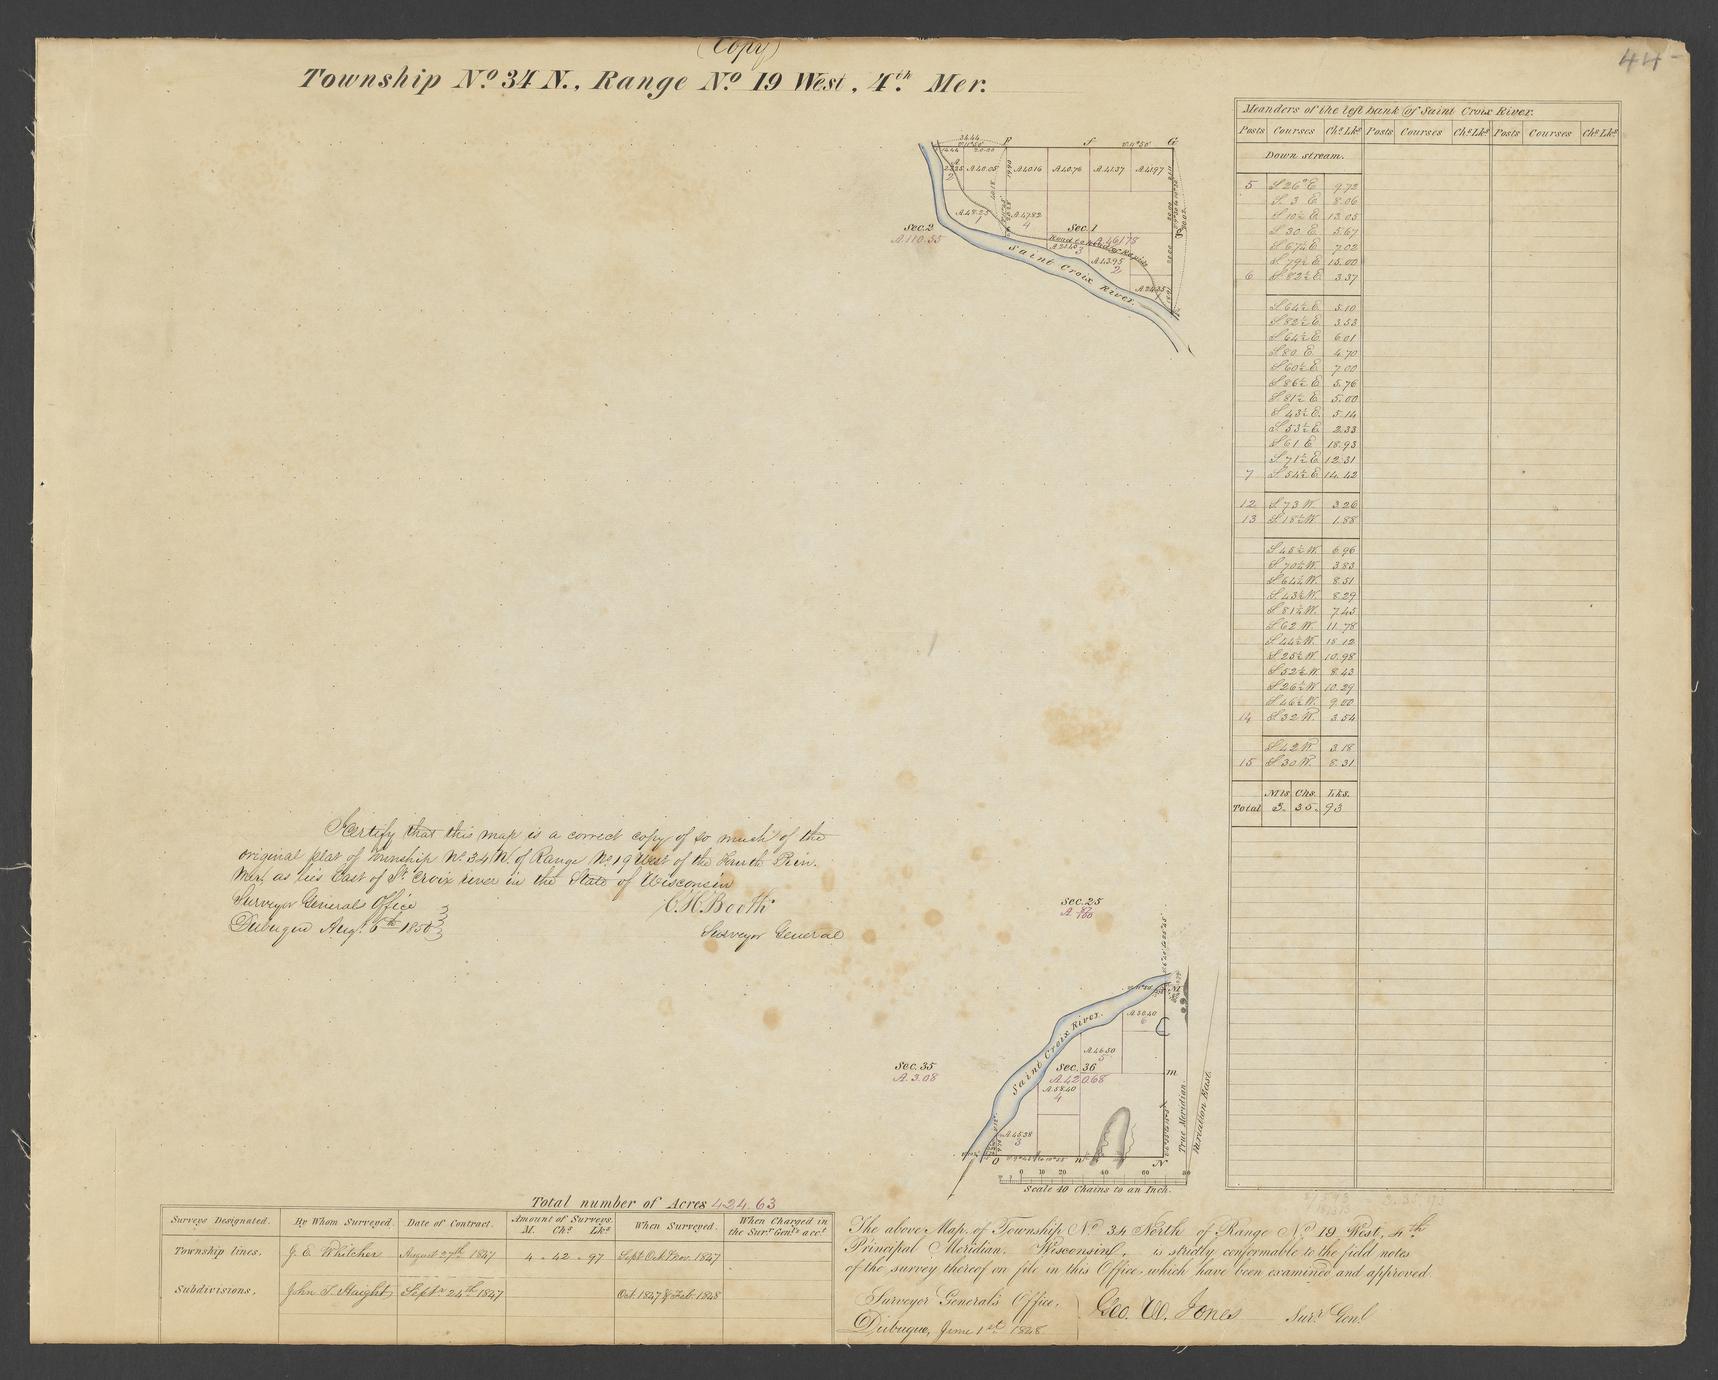 (Copy)
44
Township No. 34 N., Range No. 19 West, 4th. Mer.
Meanders of the left bank of Saint Croix River.
Posts Courses Chs. Lks. Posts Courses Chs. Lks. Posts Courses Chs. Lks.
Down stream.
5 S 26° E 9.72
S. 3 E 8.06
S 10½ E 13.05
S 30 E 5.67
7.02
S 79½ E 15.00
6 S 82½ E 3.37
S 64½ E 5.10
S 82½ E 3.53
S 64½ E 6.01
S 80 E 4.70
S 60½ E 7.00
S 86½ E 5.76
S 81½ E 5.00
S 43½ E 5.14
S 53½ E 2.33
S 61 E 18.93
S 71½ E 12.31
7 S 54½ E 14.42
12 S 73 W. 3.26
13 S 18½ W 1.88
S 45½ W. 6.96
S 70½ W. 3.83
S 64½ W. 8.51
S 43½ W. 8.29
S 81½ W. 7.45
S 62 W. 11.78
S 44½ W. 18.12
S 25½ W. 10.98
S 52½ W. 8.43
S 26½ W 10.29
S 46½ W. 9.00
14 S 32 W. 3.54
S 42 W. 3.18
15 S 30 W. 8.31
Mls. Chs. Lks.
Total 3. 35. 93
34.44
A 40.05 A 40.16 A 40.76 A 41.37 A 41.97
A 48.25
1
A 47.82
4
Sec. 2
A. 110.55
Sec. 1
A. 461.78
3
A 43.95
2
A 24.35
Saint Croix River.
I certify that this map is a correct copy of so much of the
original plat of Township No. 34 N. of Range No. 19 West of the Fourth Prin.
Mer. as lies East of St. Croix river in the State of Wisconsin
Surveyor Generals Office
Dubuque Aug. 6th 1850
C. H. Booth
Surveyor General
Sec. 25
Saint Croix River.
A 30.40
6
A 46.50
5
Sec. 36
A. 420.68
A 58.40
4
A 45.38
3
Sec. 35
A. 3.08
m
True Meridian.
Variation East.
0 10 20 40 60 80
Scale 40 Chains to an Inch.
Total number of Acres 424.63
Surveys Designated. By Whom Surveyed. Date of Contract. Amount of Surveys. M. Chs. Lks. When Surveyed. When Charged in the Surr. Genl's acct.
Township lines. J. E. Whitcher August 27th 1847 4 - 42 - 97 Sept. Oct. & Nov. 1847
Subdivisions. John T. Haight Septr. 24th 1847 Oct. 1847 & Feb. 1848
The above Map of Township No. 34 North of Range No. 19 West, 4th
Principal Meridian, Wisconsin, is strictly conformable to the field notes
of the survey thereof on file in this Office, which have been examined and approved.
Surveyor General's Office,
Dubuque, June 1st. 1848
Geo. W. Jones Surr. Genl.